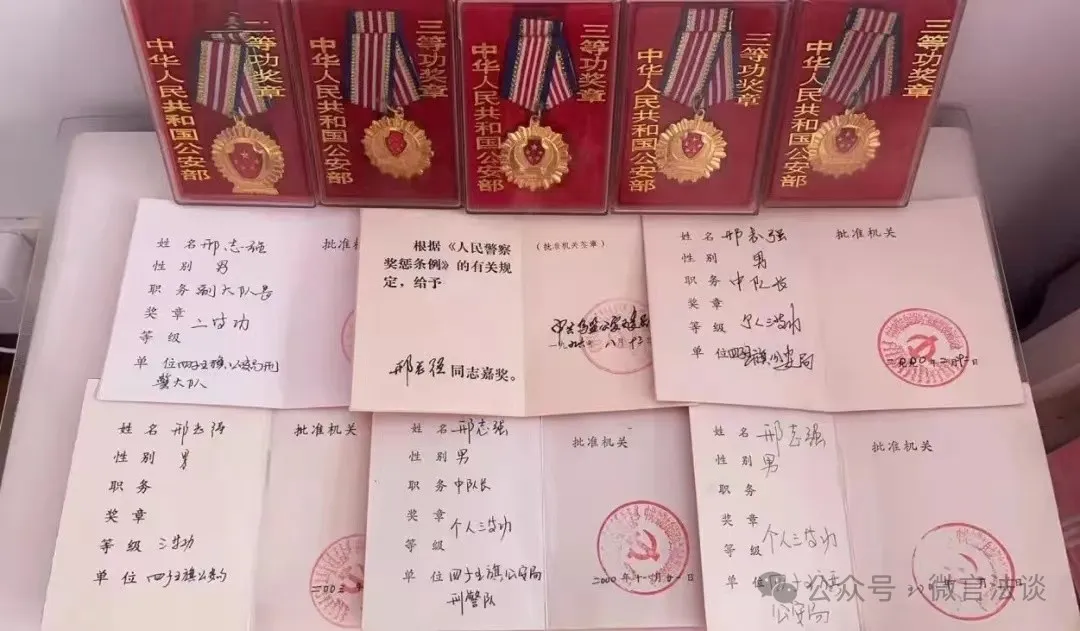 二等功奖章
中华人民共和国公安部
三等功奖章
中华人民共和国公安部
三等功奖章
中华人民共和国公安部
三等功奖章
中华人民共和国公安部
三等功奖章
中华人民共和国公安部
姓名 邢志强
批准机关
性别 男
职务 副大队长
奖章
等级 二等功
单位 四子王旗公安局刑
警大队
根据《人民警察
奖惩条例》的有关规
定，给予
邢志强同志嘉奖。
(批准机关签章)
八月十二
姓名 邢志强
批准机关
性别 男
职务 中队长
奖章
等级 个人三等功
单位 四子王旗公安局
姓名 邢志强
批准机关
性别 男
职务
奖章
等级 三等功
单位 四子王旗公安局
姓名 邢志强
批准机关
性别 男
职务 中队长
奖章 个人三等功
等级
单位 四子王旗公安局
刑警队
2000年
姓名 邢志强
批准机关
性别 男
职务
奖章
等级 个人三等功
单位
公安局
公众号·微言法谈